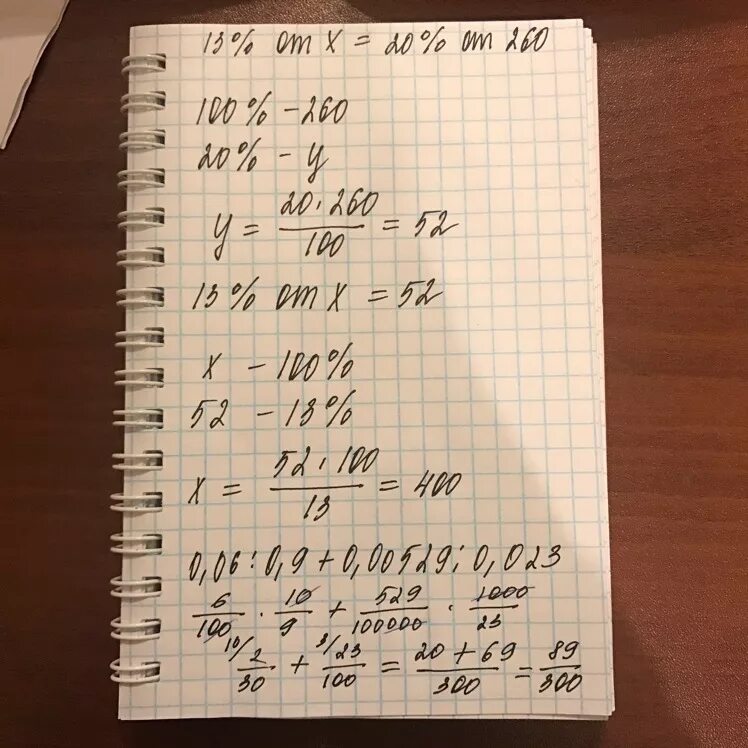 13% от x = 20% от 260
100% - 260
20% - y
y = 20 · 260 / 100 = 52
13% от x = 52
x - 100%
52 - 13%
x = 52 · 100 / 13 = 400
0,06 : 0,9 + 0,00529 : 0,023
6/100 · 10/9 + 529/100000 · 1000/23
10/ 2/30 + 3/ 23/100 = 20 + 69 / 300 = 89/300